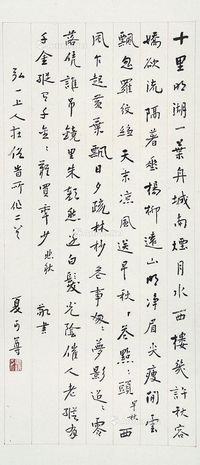 十里明湖一葉舟城南煙月水西樓幾許秋容
嬌欲流隔着垂楊柳遠山明淨眉尖瘦閒雲
飄忽羅紋皺天末涼風送早秋、花點〻頭 早秋 西
風乍起黃葉飄日夕疏林杪花事匆〻夢影迢〻零
落憑誰弔鏡裏朱顏愁邊白髮光陰催人老縱有
千金縱有千金〻〻難買年少 悲秋
弘一上人在俗時所作二首 敬書
夏丏尊